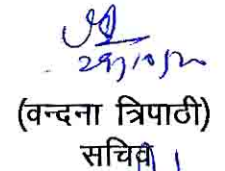 29/10/20
(वन्दना त्रिपाठी)
सचिव